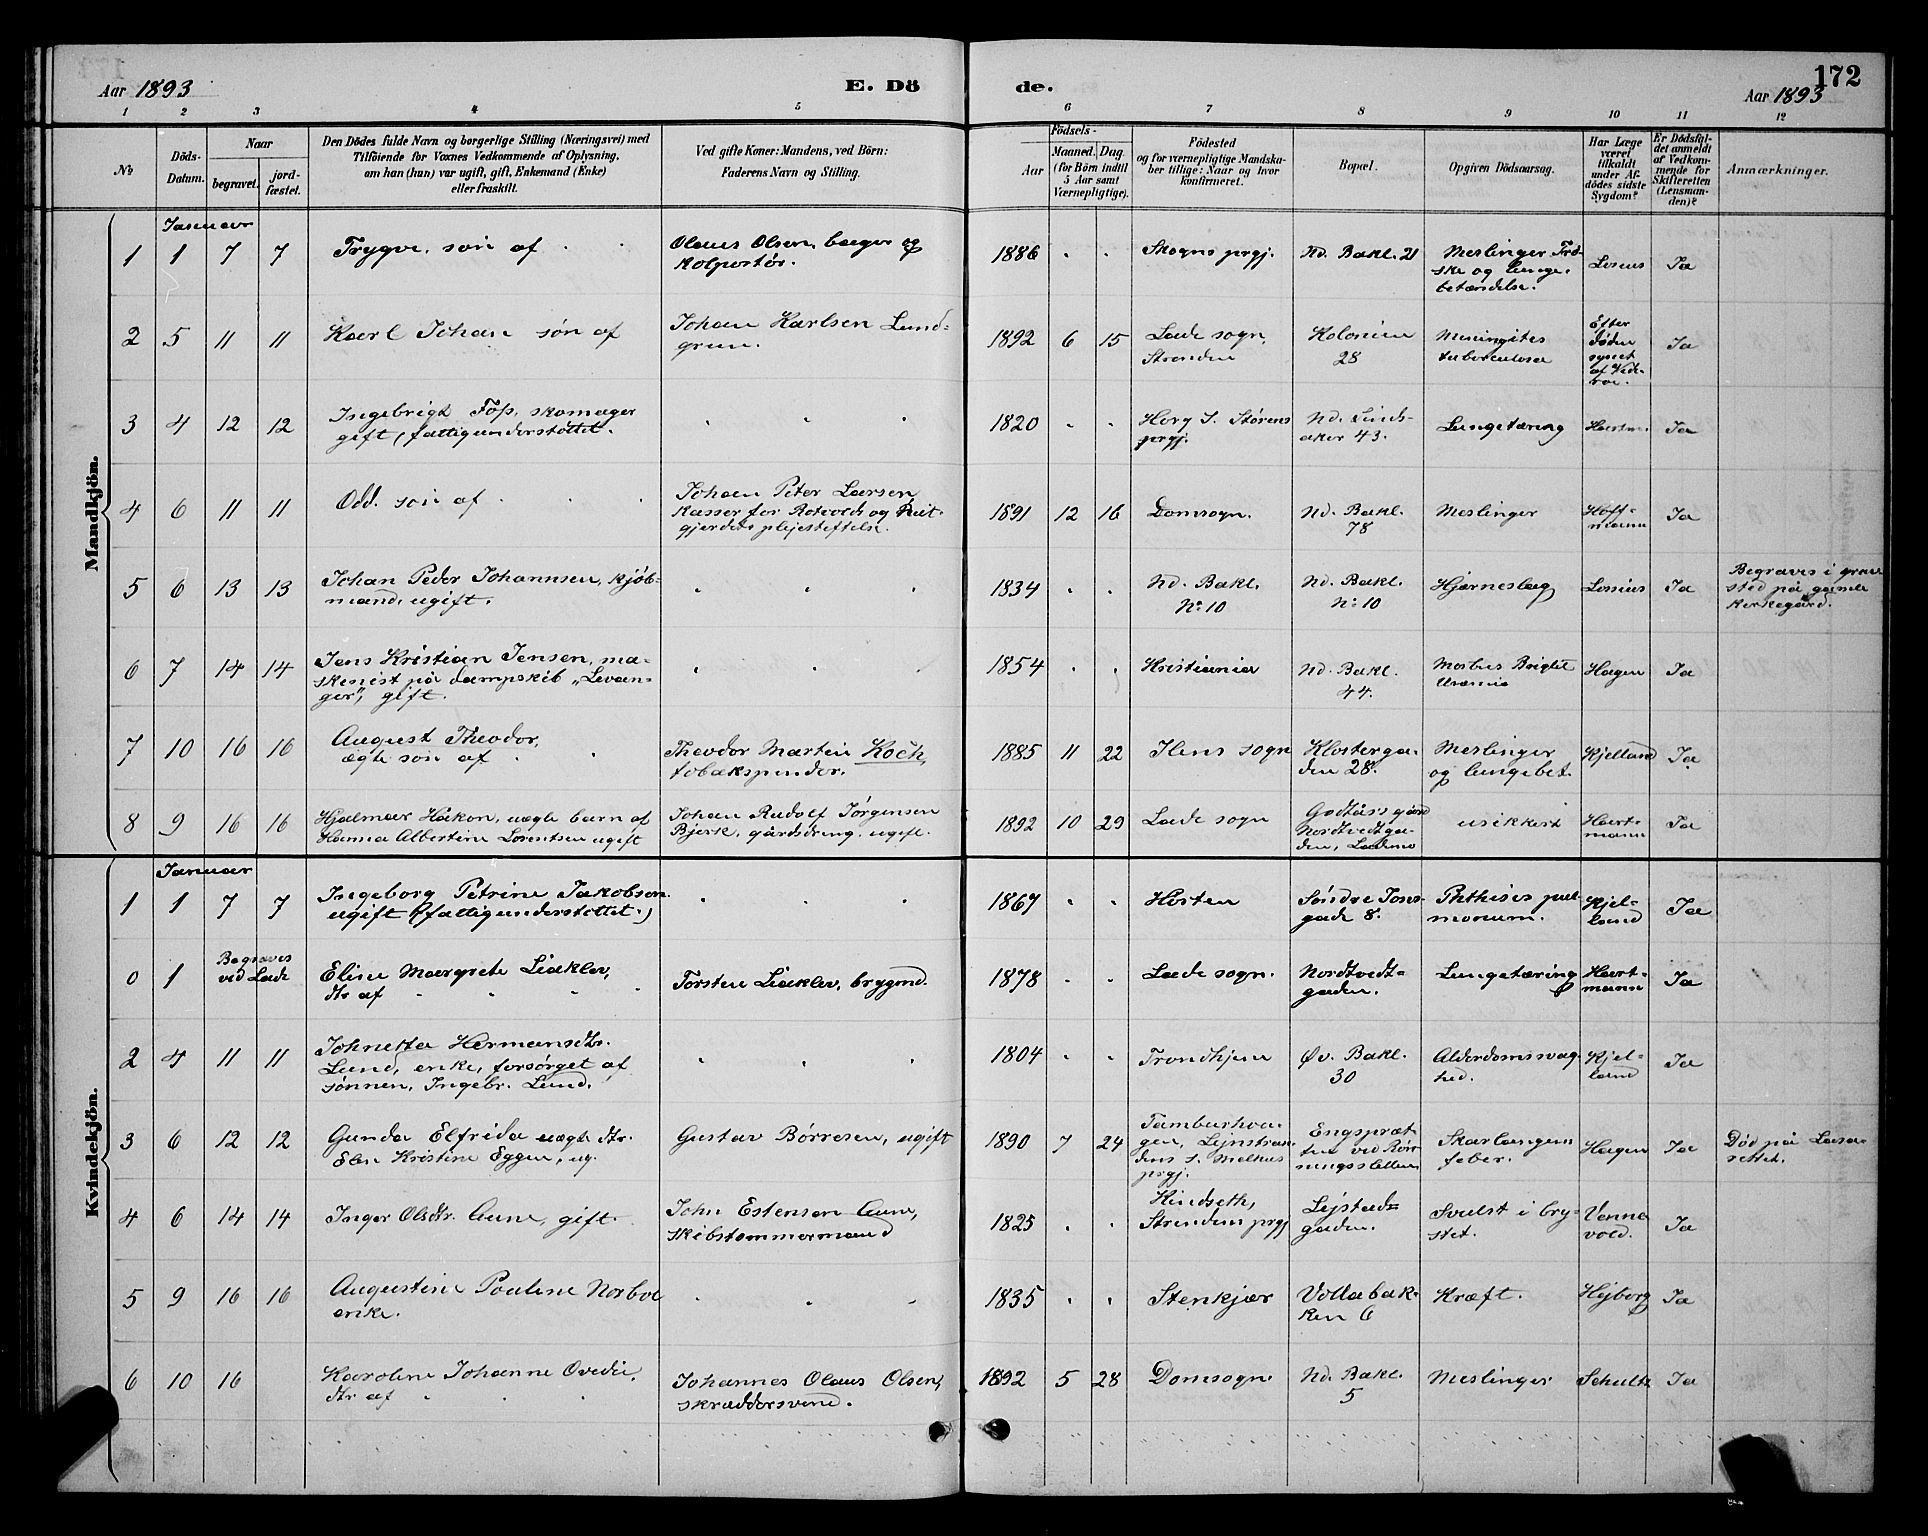 172
Aar 1893
E. Dö
de.
Aar 1893
1 2 3 4 5 6 7 8 9 10 11 12
No
Döds-
Datum.
Naar
begravet.
jord-
fæstet.
Den Dödes fulde Navn og borgerlige Stilling (Næringsvei) med
Tilföiende for Voxnes Vedkommende af Oplysning,
om han (hun) var ugift, gift, Enkemand (Enke)
eller fraskilt.
Ved gifte Koner: Mandens, ved Börn:
Faderens Navn og Stilling.
Födsels-
Aar
Maaned.
Dag.
(for Börn indtil
5 Aar samt
Værnepligtige).
Födested
og for værnepligtige Mandska-
ber tillige: Naar og hvor
konfirmeret.
Bopæl.
Opgiven Dödsaarsag.
Har Læge
været
tilkaldt
under Af-
dödes sidste
Sygdom?
Er Dödsfal-
det anmeldt
af Vedkom-
mende for
Skifteretten
(Lensman-
den)?
Anmærkninger.
Mandkjön.
Januar
1 1 7 7 Trygve, søn af
Olaus Olsen, bager og
kolportör.
1886 Skogns prgj. Nd. Bakl. 21
Meslinger
ske og lunge-
betændelse.
Lossius Ja
2 5 11 11 Karl Johan søn af
Johan Karlsen Lund-
gren.
1892 6 15 Lade sogn,
Stranden
Kolonien
28
Meningites
tuberculosa
Efter
døden
synet
af
Ja
3 4 12 12 Ingebrigt Fos, skomager
gift, fattigunderstøttet.
1820 Horg S. Størens
prgj.
Nd. Linds-
aker 43.
Lungetæring Ja
4 6 11 11 Odd. søn af
Johan Peter Larsen,
kasser for Rotvolds og Reit-
gjerdets plejestiftelse.
1891 12 16 Domsogn. Nd. Bakl.
78
Meslinger Hoff-
mann Ja
5 6 13 13 Johan Peder Johannsen, kjøb-
mand, ugift.
1834 Nd. Bakl.
No 10
Nd. Bakl.
No 10
Hjærneslag Lossius Ja
Begraves i grav-
sted på gamle
kirkegård.
6 7 14 14 Jens Kristian Jensen, ma-
skinist på dampskib „Levan-
ger", gift.
1854 Kristiania Nd. Bakl.
44.
Morbus Brigtii
Uræmia
Hagen Ja
7 10 16 16 August Theodor,
ægte søn af
Theodor Martin Koch,
tobakspinder.
1885 11 22 Ilens sogn Klosterga-
den 28.
Meslinger
og lungebet.
Kjelland Ja
8 9 16 16 Hjalmar Håkon, uægte barn af
Hanna Albertine Lorentsen ugift
Johan Rudolf Jørgensen
Bjerk, gårdsdreng, ugift.
1892 10 29 Lade sogn
Godtåss gård
Nordtvedtga-
den, Lademo
usikkert Hart-
mann Ja
Kvindekjön.
Januar
1 1 7 7 Ingeborg Petrine Jakobsen
ugift (fattigunderstøttet.)
1867 Horten Søndre Jons-
gade 8.
Phthisis pul-
monum.
Kjel-
land Ja
0 1 Begraves
ved Lade
Elise Margrete Liaklev,
dtr af
Torsten Liaklev, brygmd.
1878 Lade sogn. Nordtvedt-
gaden.
Lungetæring Hart-
mann Ja
2 4 11 11 Johnetta Hermansdtr.
Lund, enke, forsørget af
sønnen, Ingebr. Lund.
1804 Trondhjem Øv. Bakl.
30
Alderdomssvag-
hed.
Kjel-
land Ja
3 6 12 12 Gunda Elfrida uægte dtr.
Elen Kristine Eggen, ug.
Gustav Børresen, ugift
1890 7 24 Tamburhau-
gen, Lejnstran-
dens s. Melhus
prgj.
Engspræt-
ten ved Rør-
ningssletten
Skarlagens
feber.
Hagen Ja
Død på Lasa-
rettet.
4 6 14 14 Inger Olsdtr. Aune, gift.
John Estensen Aune,
skibstømmermand
1825 Hindseth,
Strindens prgj
Lejstads-
gaden.
Svulst i bry-
stet.
Venne-
vold. Ja
5 9 16 16 Augustine Pauline Norboe
enke.
1835 Stenkjær Vollabak-
ken 6
Kræft. Hejborg Ja
6 10 16 Karoline Johanne Ovedie,
dtr af
Johannes Olaus Olsen,
skræddersvend.
1892 5 28 Domsogn Nd. Bakl.
5
Meslinger Schultz Ja